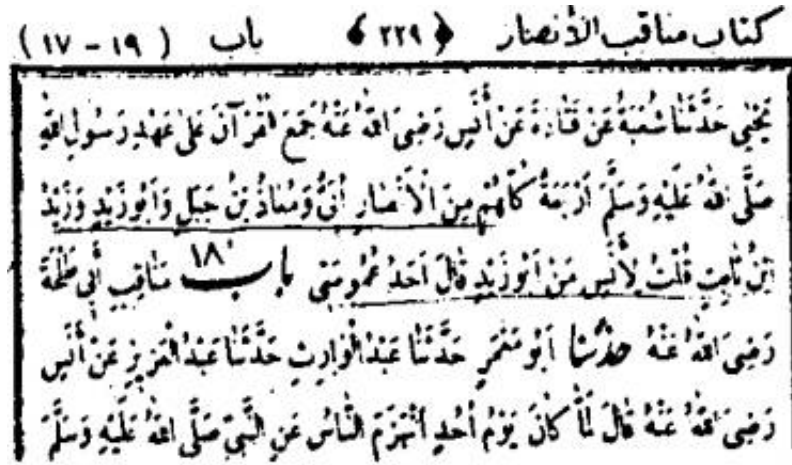 كتاب مناقب الأنصار ﴿ ٢٢٩ ﴾ باب ( ١٩ - ١٧ )
يَحْيَى حَدَّثَنَا شُعْبَةُ عَنْ قَتَادَةَ عَنْ أَنَسٍ رَضِيَ اللهُ عَنْهُ جَمَعَ الْقُرْآنَ عَلَى عَهْدِ رَسُولِ اللهِ
صَلَّى اللهُ عَلَيْهِ وَسَلَّمَ أَرْبَعَةٌ كُلُّهُمْ مِنَ الْأَنْصَارِ أُبَيٌّ وَمُعَاذُ بْنُ جَبَلٍ وَأَبُو زَيْدٍ وَزَيْدُ
ابْنُ ثَابِتٍ قُلْتُ لِأَنَسٍ مَنْ أَبُو زَيْدٍ قَالَ أَحَدُ عُمُومَتِي باب ١٨ مَنَاقِبِ أَبِي طَلْحَةَ
رَضِيَ اللهُ عَنْهُ حدثنا أَبُو مَعْمَرٍ حَدَّثَنَا عَبْدُ الْوَارِثِ حَدَّثَنَا عَبْدُ الْعَزِيزِ عَنْ أَنَسٍ
رَضِيَ اللهُ عَنْهُ قَالَ لَمَّا كَانَ يَوْمُ أُحُدٍ انْهَزَمَ النَّاسُ عَنِ النَّبِيِّ صَلَّى اللهُ عَلَيْهِ وَسَلَّمَ